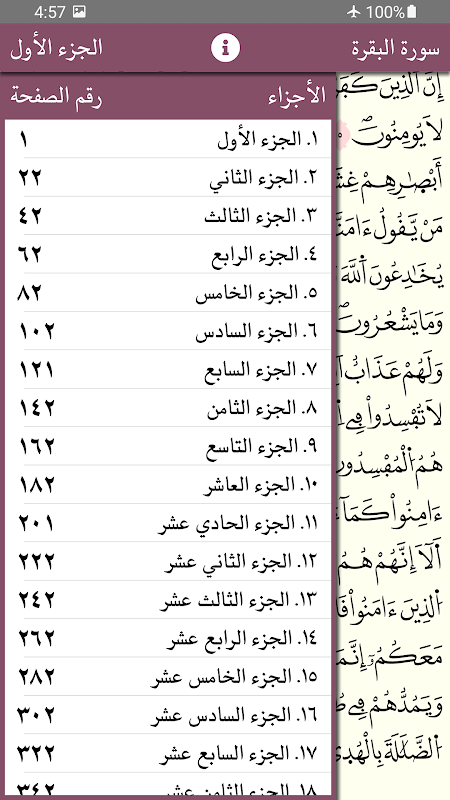 4:57 100%
سورة البقرة الجزء الأول
الأجزاء رقم الصفحة
١. الجزء الأول ١
٢. الجزء الثاني ٢٢
٣. الجزء الثالث ٤٢
٤. الجزء الرابع ٦٢
٥. الجزء الخامس ٨٢
٦. الجزء السادس ١٠٢
٧. الجزء السابع ١٢١
٨. الجزء الثامن ١٤٢
٩. الجزء التاسع ١٦٢
١٠. الجزء العاشر ١٨٢
١١. الجزء الحادي عشر ٢٠١
١٢. الجزء الثاني عشر ٢٢٢
١٣. الجزء الثالث عشر ٢٤٢
١٤. الجزء الرابع عشر ٢٦٢
١٥. الجزء الخامس عشر ٢٨٢
١٦. الجزء السادس عشر ٣٠٢
١٧. الجزء السابع عشر ٣٢٢
١٨. الجزء الثامن عشر ٣٤٢
إِنَّ الذِينَ
لَا يُومِنُونَ
أَبْصَٰرِهِمْ
مَنْ يَّقُولُ
يُخَٰدِعُونَ اَللَّهَ
وَمَا يَشْعُرُونَ
وَلَهُمْ عَذَابٌ
لَا تُفْسِدُواْ فِے
هُمُ اُلْمُفْسِدُونَ
ءَامِنُواْ كَمَا
أَلَا إِنَّهُمْ هُمُ
اُلذِينَ ءَامَنُواْ
مَعَكُمُ إِنَّمَا
وَيَمُدُّهُمْ فِے
اُلضَّلَٰلَةَ بِالْهُدٰى